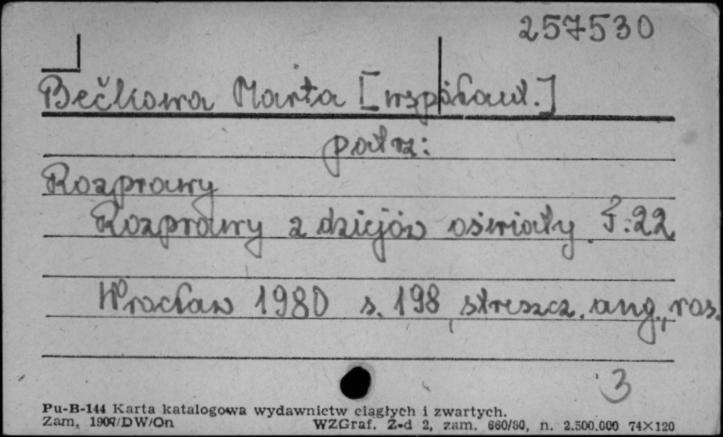 257530
Bečkowa Marta [współaut.]
patrz:
Rozprawy
Rozprawy z dziejów oświaty. T.:22
Wrocław 1980 s. 198, streszcz. ang., ros.
3
Pu-B-144 Karta katalogowa wydawnictw ciągłych i zwartych.
Zam, 1907/DW/On WZGraf. Z-d 2, zam. 660/80, n. 2.500.000 74X120